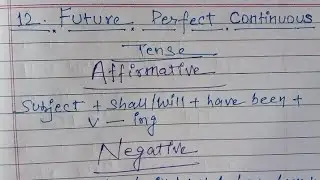 12. Future Perfect Continuous
Tense
Affirmative
Subject + shall/will + have been +
v-ing
Negative